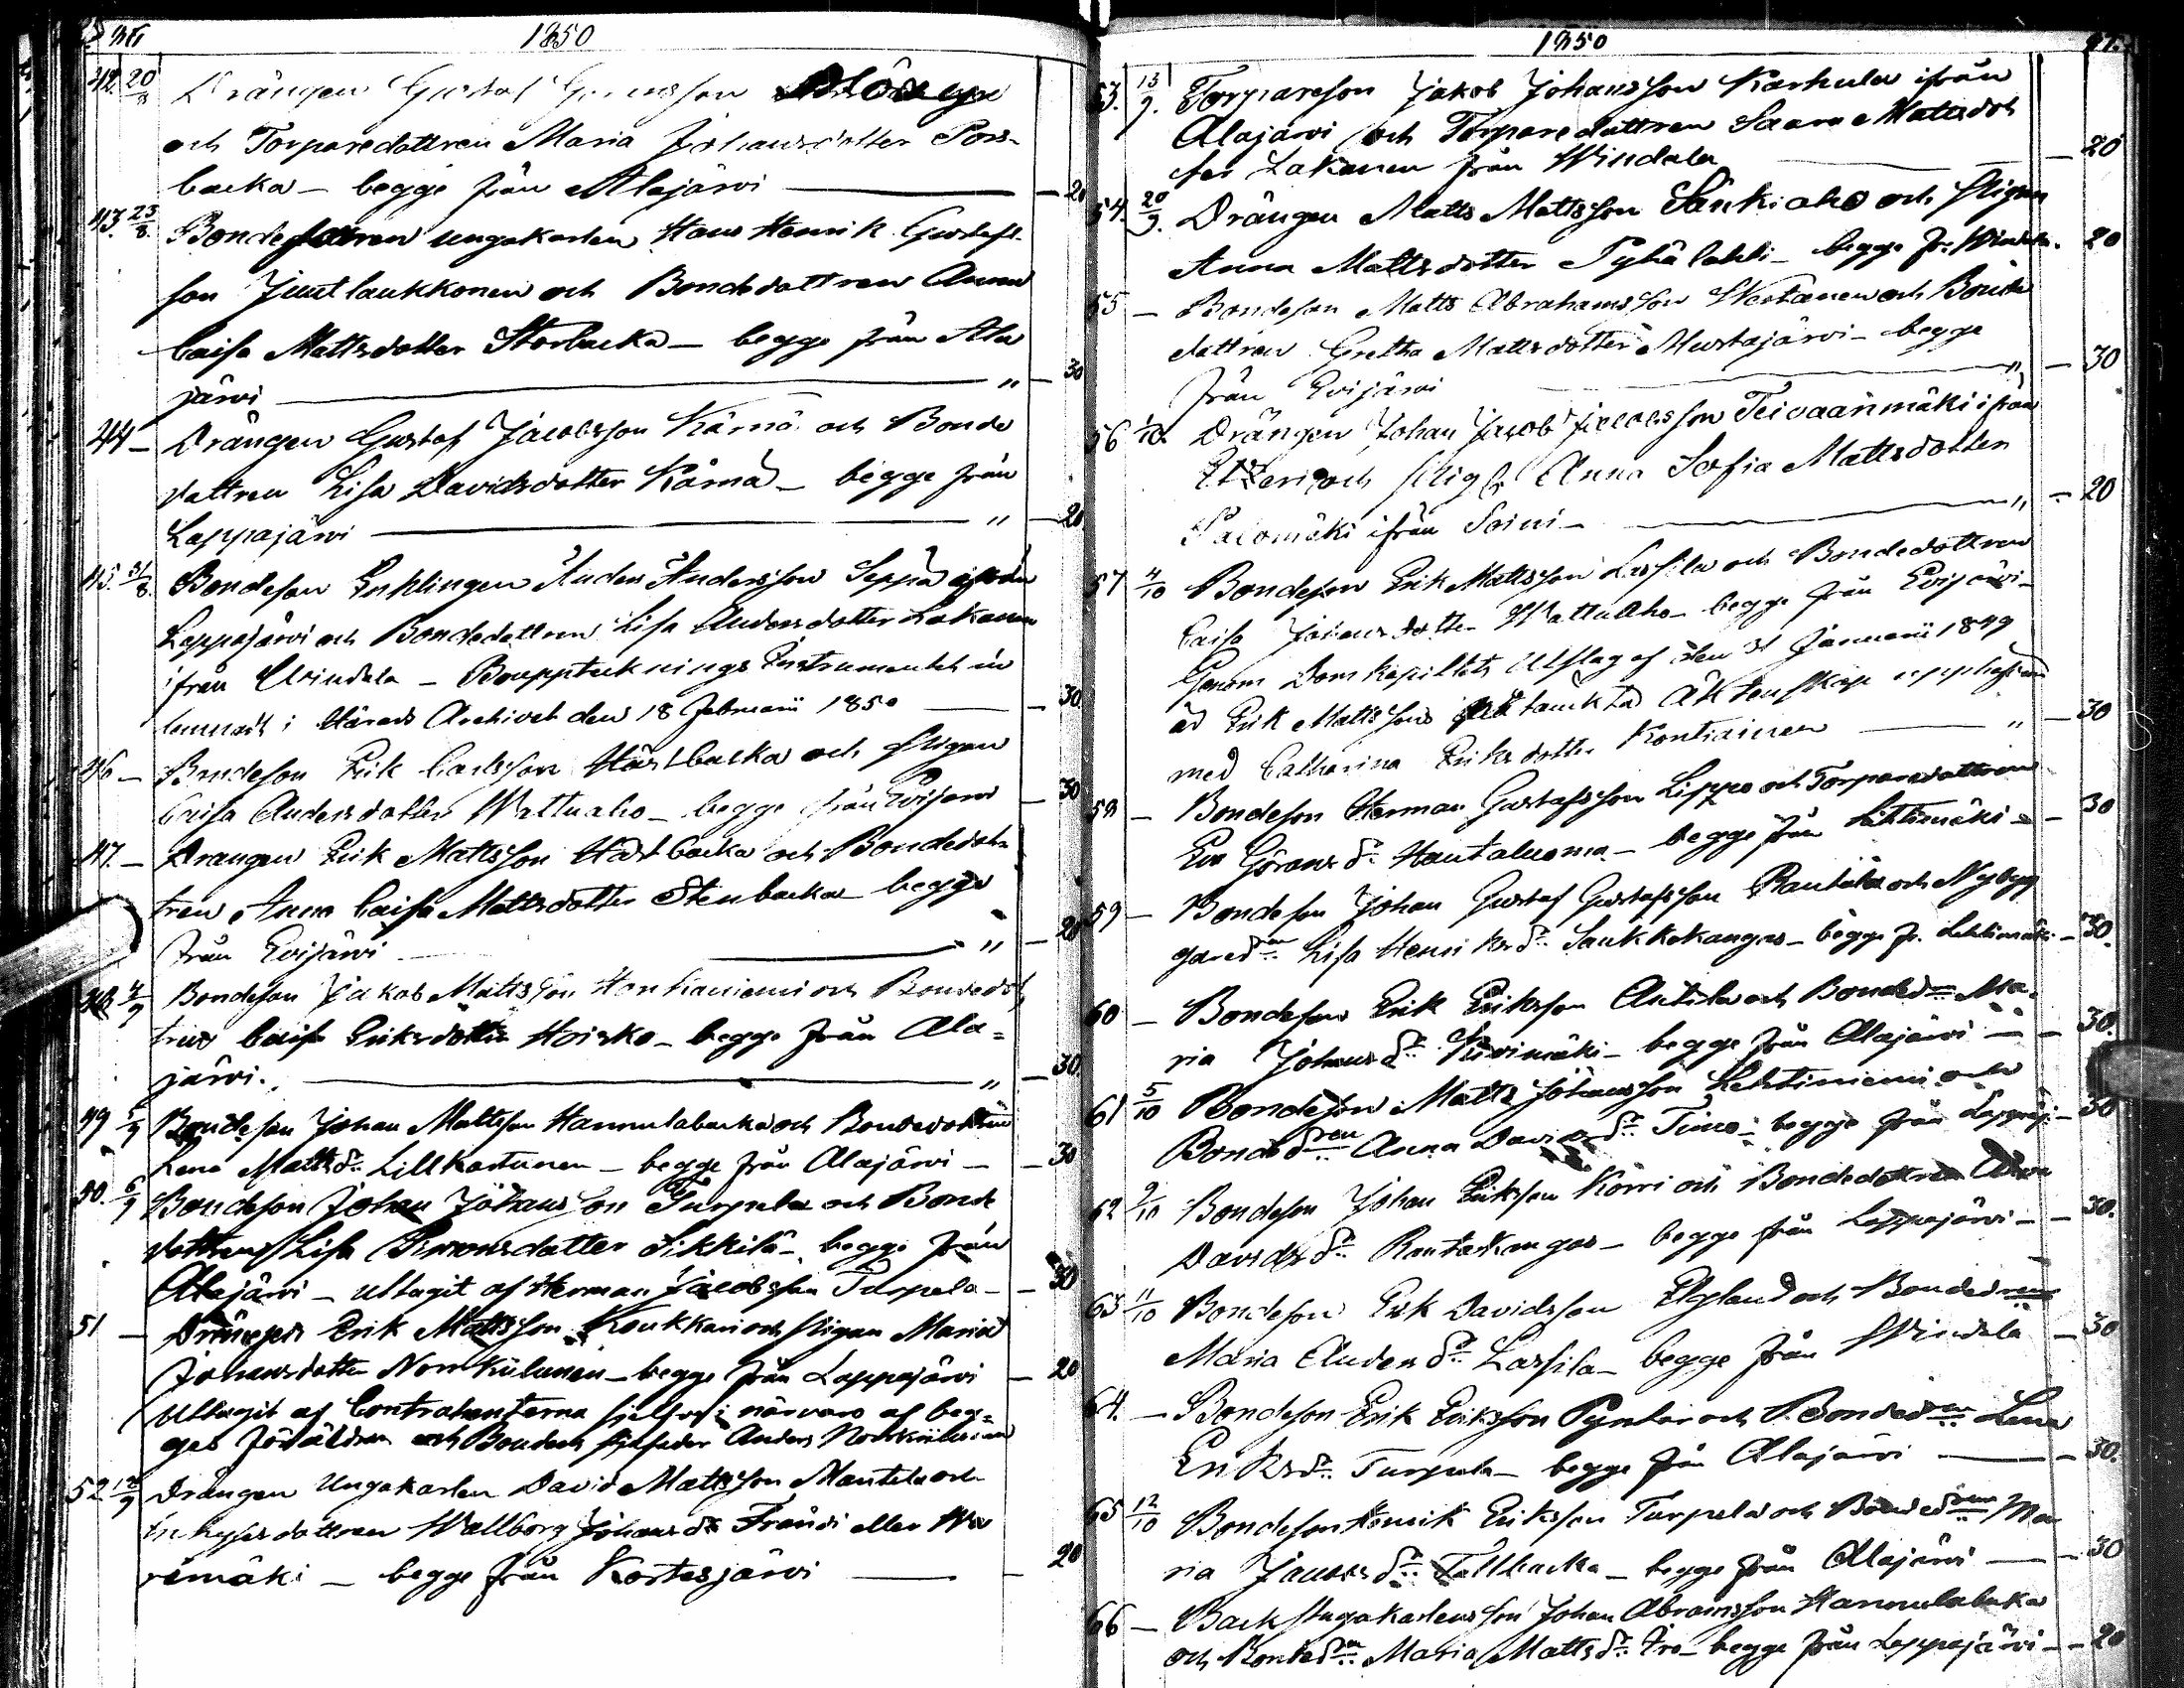 36
1850
42. 20/8 Drängen Gustaf
och Torparedottren Maria Johansdotter Pors-
backa – begge från Alajärvi — 20
43. 23/8. Bonde ungakarlen Hans Henrik Gustafs-
son Juutlaukkonen och Bondedottren Anna
Caisa Mattsdotter Storbacka – begge från Ala
järvi " — 30
44 – Drängen Gustaf Jacobsson Kärnä och Bonde
dottren Lisa Davidsdotter Kärnä – begge från
Lappajärvi " — 20
45. 31/8. Bondeson Enklingen Anders Andersson Seppä ifrån
Lappajärvi och Bondedottren Lisa Andersdotter Lakanen
ifrån Windala – Bouppteknings Instrumentet in
lemnadt i Härads Archivet den 18 Februarii 1850 — 30.
46 – Bondeson Erik Carlsson Härtbacka och Pigan
Caisa Andersdotter Wattuaho – begge från Evijärvi — 30
47. – Drängen Erik Mattsson Härtbacka och Bondedot-
tren Anna Caisa Mattsdotter Stenbacka – begge
från Evijärvi " — 20
48 4/9 Bondeson Jakob Mattsson Honkaniemi och Bondedot
tren Caisa Eriksdotter Hoisko – begge från Ala=
järvi. " — 30.
49 5/9 Bondeson Johan Mattsson Hannulabacka och Bondedottren
Lena Mattsdr Lillkastunen – begge från Alajärvi — 30
50. 6/9 Bondeson Johan Johansson Turpela och Bonde
dottren Lisa Simonsdotter Sikkilä – begge från
Alajärvi – uttagit af Herman Jacobsson Turpela — 30
51 – Drängen Erik Mattsson Koukkari och Pigan Maria
Johansdotter Norrkiilunen – begge från Lappajärvi — 20
Uttagit af Contrahenterna sjelfve i närvaro af beg=
ges föräldrar och Anders Norrkiilunen
52 12/9 Drängen Ungakarlen David Mattsson Mantila och
Inhysesdottren Wallborg Johansdr Frändi eller
rämäki – begge från Kortesjärvi — 20
1850
37.
53. 13/9. Torpareson Jakob Johansson Karhula ifrån
Alajärvi och Torparedottren Saara Mattsdot
ter Lakanen från Windala — 20
54. 20/9. Drängen Matts Mattsson Sänkiaho och Pigan
Anna Mattsdotter Pyhälahti – begge fr. Windala. 20
55 – Bondeson Matts Abrahamsson Westanen och Bonde
dottren Gretha Mattsdotter Mustajärvi – begge
från Evijärvi " — 30
56 1/10. Drängen Johan Jacob Jacobsson Teivaanmäki ifrån
Etseri och Pig. Anna Sofia Mattsdotter
Salomäki ifrån Soini – " — 20
57 4/10 Bondeson Erik Mattsson Lassila och Bondedottren
Caisa Johansdotter Wattuaho – begge från Evijärvi –
Genom Domkapitlets Utslag af den 31 Januarii 1849
är Erik Mattssons tänkta Äktenskap upphäfvet
med Catharina Eriksdotter Kontiainen " — 30
58 – Bondeson Herman Gustafsson Lippo och Torparedottren
Eva Göransdr Hautaluoma – begge från Lehtimäki — 30
59 – Bondeson Johan Gustaf Gustafsson Rantala och Nybyg
garedren Lisa Henriksdr Saukkokangas – begge fr. Lehtimäki – 30.
60 – Bondeson Erik Eriksson Anttila och Bondedren Ma-
ria Johansdr Kivimäki – begge från Alajärvi — 30.
61 5/10 Bondeson Matts Johansson Lehtiniemi och
Bondedren Anna Davidsdr Timo – begge från Lappaj. — 30
62 9/10 Bondeson Johan Eriksson Körri och Bondedottren Anna
Davidsdr Rantakangas – begge från Lappajärvi — 30.
63 11/10 Bondeson Erik Davidsson Elgland och Bondedren
Maria Andersdr Lassila – begge från Windala — 30
64. – Bondeson Erik Eriksson Pynttäri och Bondedren Lena
Eriksdr Turpela – begge från Alajärvi — 30.
65 12/10 Bondeson Henrik Eriksson Turpela och Bondedren Ma
ria Jacobsdr Tallbacka – begge från Alajärvi — 30
66 – Backstugakarlens son Johan Abramsson Hannulabacka
och Bondedren Maria Mattsdr Iro – begge från Lappajärvi — 20